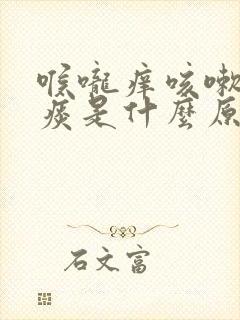 喉嚨痒咳嗽
痰是什麼原
石文富